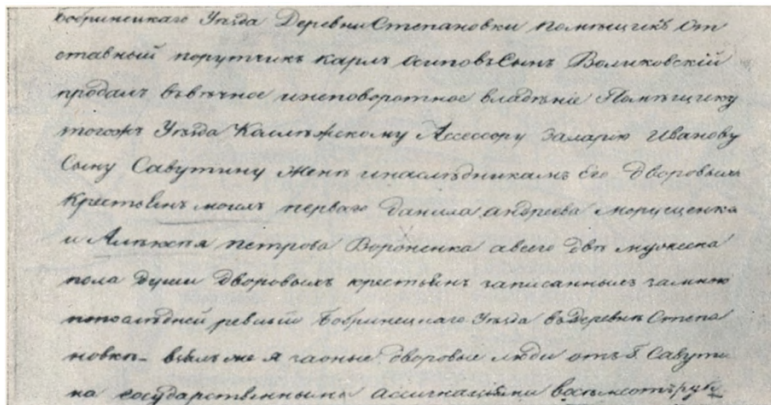 Бобринецкаго Уѣзда Деревни Степановки помѣщикъ от
ставный порутчикъ Карлъ осиповъ Сынъ Воликовскій
продалъ въвѣчное инеповоротное владѣніе Помѣщику
тогожъ Уѣзда Коллѣжскому Ассессору Заларію Иванову
Сыну Савутину женѣ инаслѣдникамъ Его дворовыхъ
Крестьянъ моихъ перваго Данила андреева
и Алѣксѣя петрова Вороненка авсего двѣ мужеска
пола души дворовыхъ крестьянъ записанныхъ замною
попослѣдней ревизіи Бобринецкаго Уѣзда въДеревнѣ Степа
новкѣ взялъ же я заоные дворовые люди отъ Г. Савути
на государственными ассигнаціями восемьсотъ руб